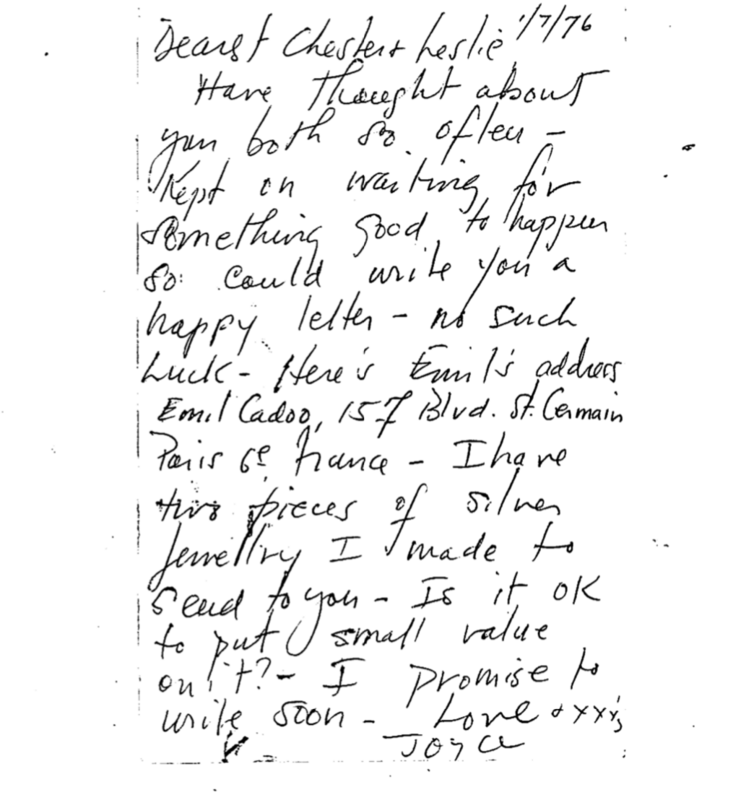 Dearest Chester + Leslie, 1/7/76
Have thought about
you both so often –
Kept on waiting for
something good to happen
so could write you a
happy letter – no such
Luck – Here's Emil's address
Emil Cadoo, 157 Blvd. St. Germain
Paris 6e France – I have
two pieces of silver
Jewellry I made to
send to you – Is it OK
to put small value
on it? – I promise to
write soon – Love + xxx's
Joyce